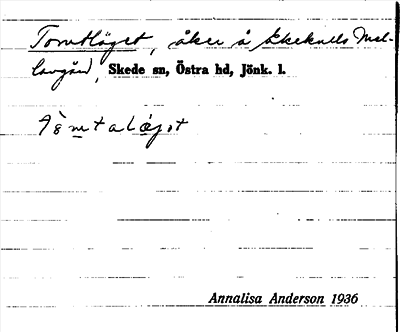 Tomtläget, åker å Ekeknells Mel-
langård, Skede sn, Östra hd, Jönk. l.
Annalisa Anderson 1936